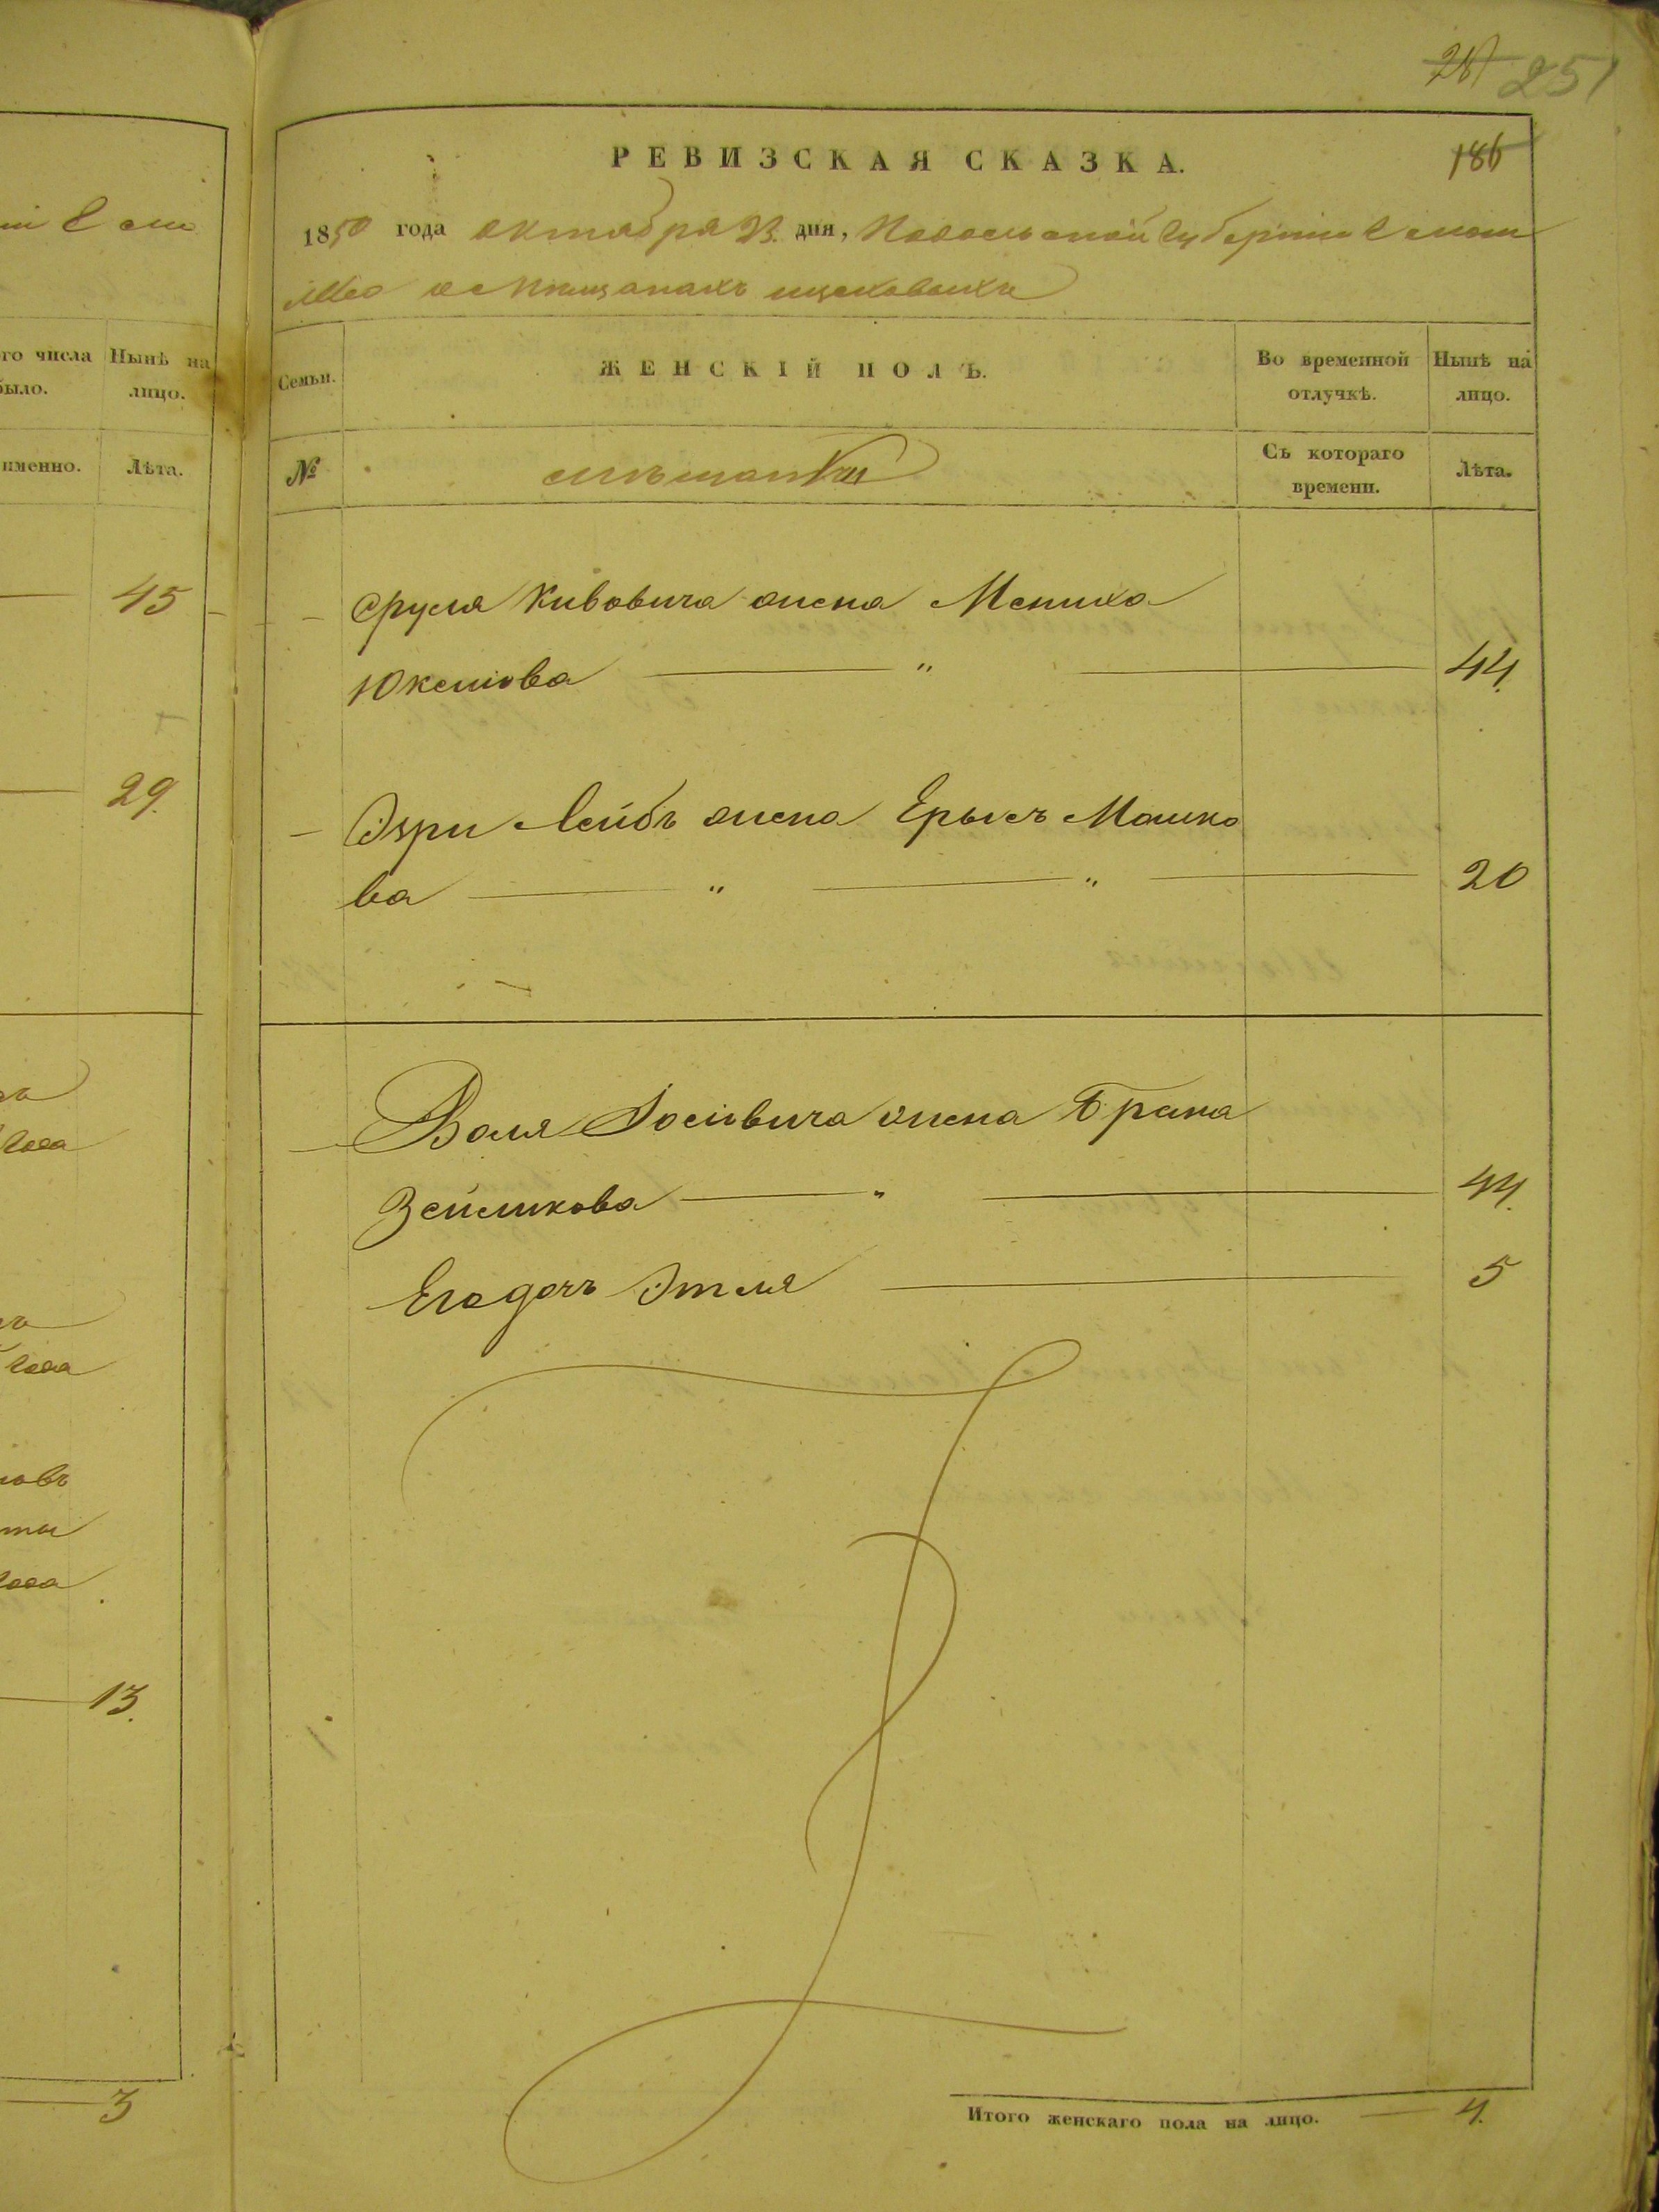 251
186
РЕВИЗСКАЯ СКАЗКА.
1850 года октября 23. дня,
о Мещанахъ
го числа
было.
Нынѣ на
лицо.
Семьи.
ЖЕНСКІЙ ПОЛЪ.
Во временной
отлучкѣ.
Нынѣ на
лицо.
именно.
Лѣта.
№
мѣщанки
Съ котораго
времени.
Лѣта.
45
Сруля Кивовича жена Мениха
Юкелiова — " — 44.
29.
Эзри Лейбъ жена Ерысъ Машко
ва — " — " — 20
Воля Іосiовича жена Брана
Зейликова — " — 44.
Его дочь Этля — 5
13.
3
Итого женскаго пола на лицо. — 4.